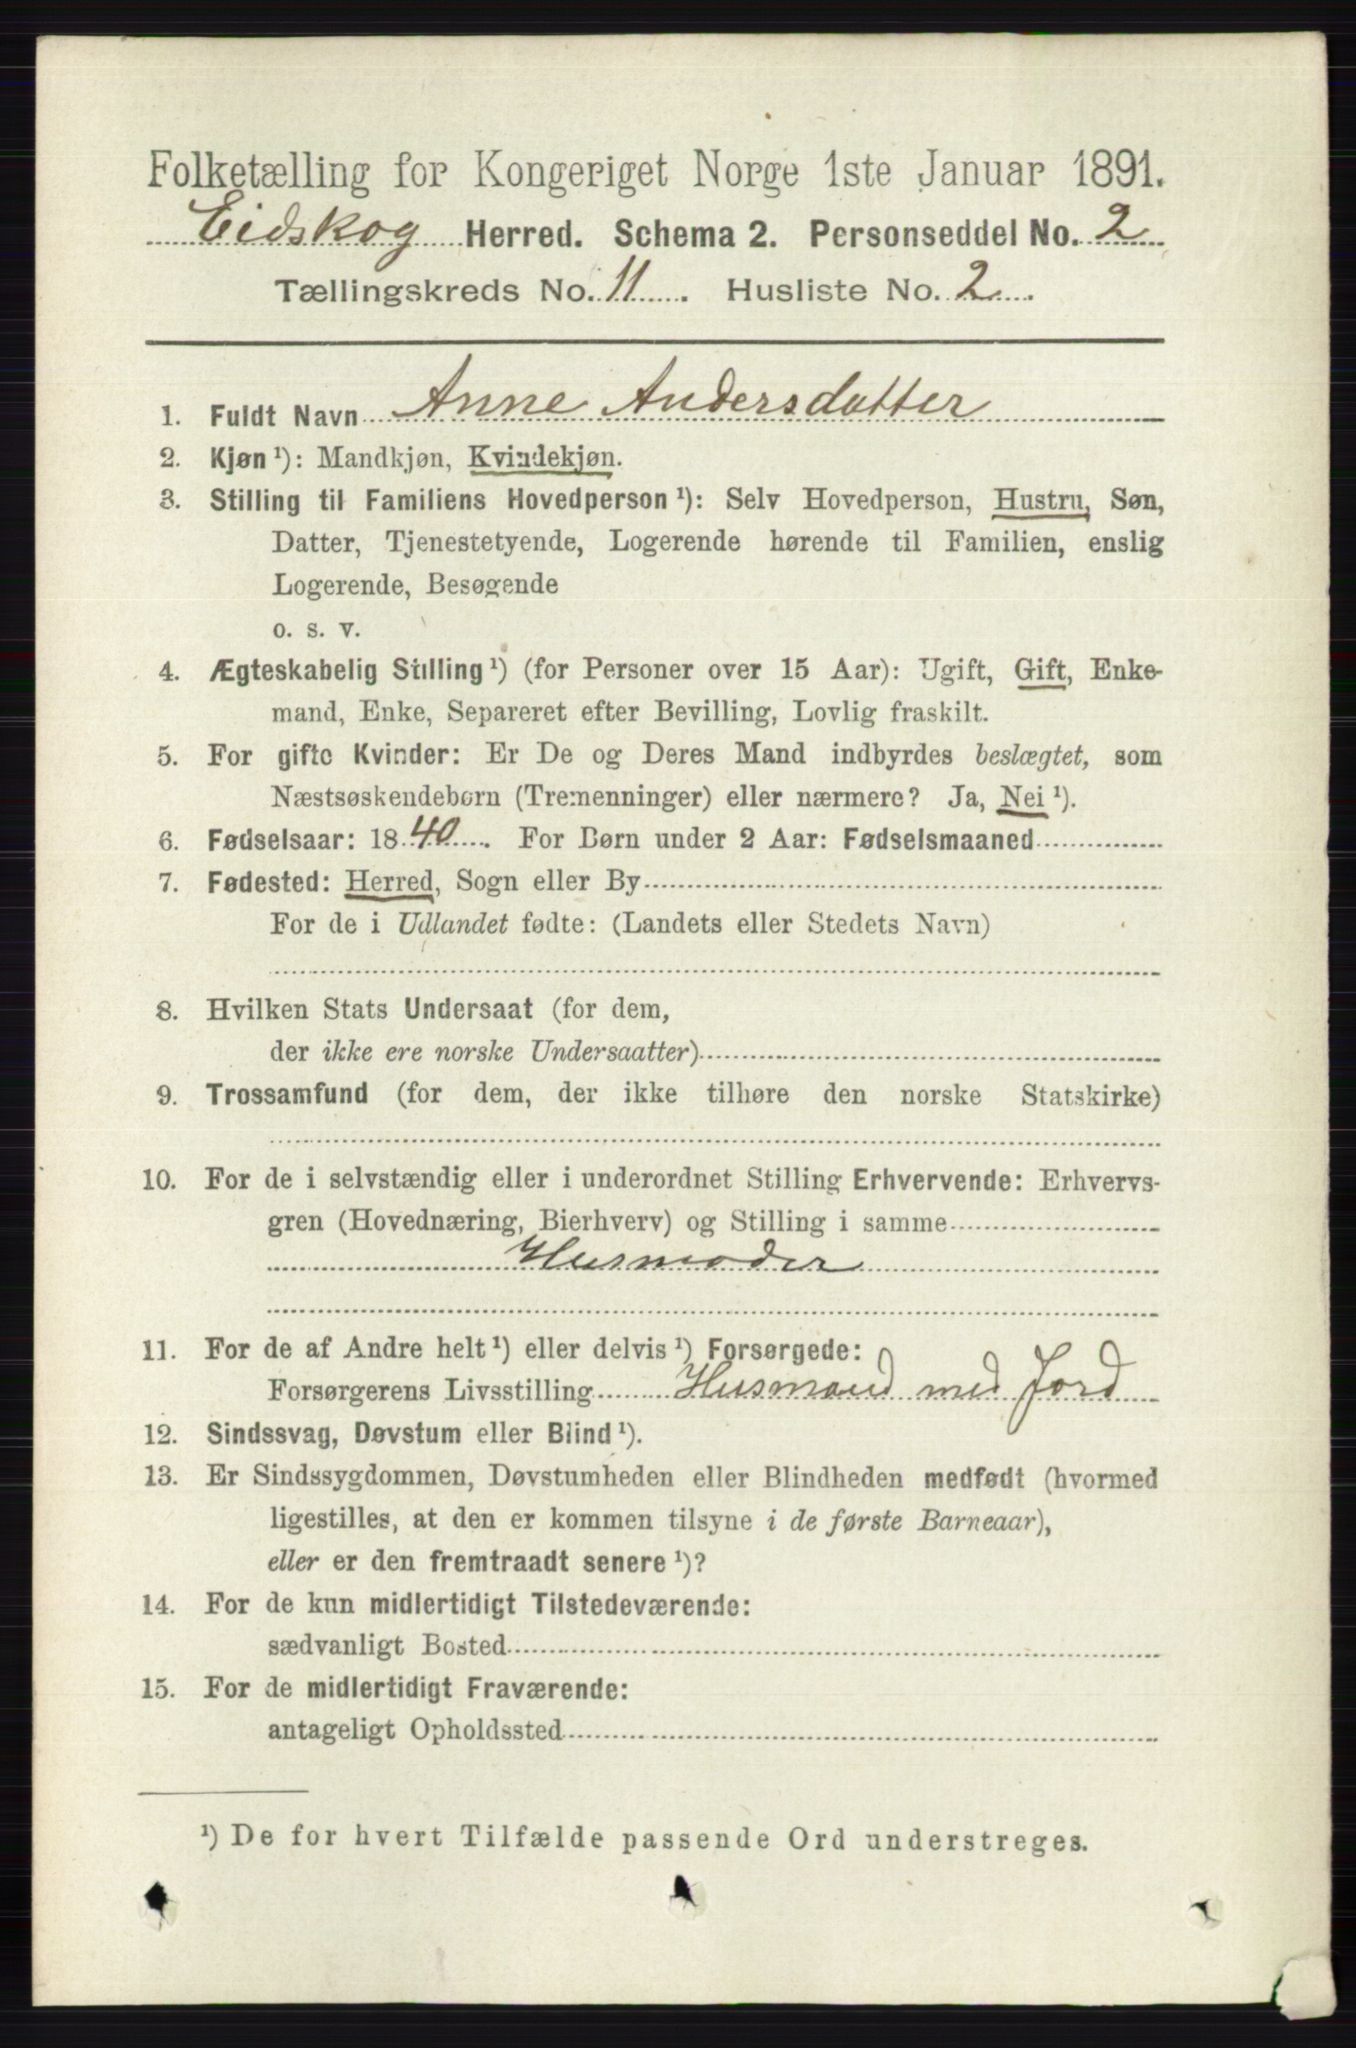 Folketælling for Kongeriget Norge 1ste Januar 1891.
Eidskog Herred. Schema 2. Personseddel No. 2
Tællingskreds No. 11. Husliste No. 2.
1. Fuldt Navn Anne Andersdatter
2. Kjøn ¹): Mandkjøn, Kvindekjøn.
3. Stilling til Familiens Hovedperson ¹): Selv Hovedperson, Hustru, Søn,
Datter, Tjenestetyende, Logerende hørende til Familien, enslig
Logerende, Besøgende
o. s. v.
4. Ægteskabelig Stilling ¹) (for Personer over 15 Aar): Ugift, Gift, Enke-
mand, Enke, Separeret efter Bevilling, Lovlig fraskilt.
5. For gifte Kvinder: Er De og Deres Mand indbyrdes beslægtet, som
Næstsøskendebørn (Tremenninger) eller nærmere? Ja, Nei ¹).
6. Fødselsaar: 1840. For Børn under 2 Aar: Fødselsmaaned
7. Fødested: Herred, Sogn eller By
For de i Udlandet fødte: (Landets eller Stedets Navn)
8. Hvilken Stats Undersaat (for dem,
der ikke ere norske Undersaatter)
9. Trossamfund (for dem, der ikke tilhøre den norske Statskirke)
10. For de i selvstændig eller i underordnet Stilling Erhvervende: Erhvervs-
gren (Hovednæring, Bierhverv) og Stilling i samme
Husmoder
11. For de af Andre helt ¹) eller delvis ¹) Forsørgede:
Forsørgerens Livsstilling Husmand med Jord
12. Sindssvag, Døvstum eller Blind ¹).
13. Er Sindssygdommen, Døvstumheden eller Blindheden medfødt (hvormed
ligestilles, at den er kommen tilsyne i de første Barneaar),
eller er den fremtraadt senere ¹)?
14. For de kun midlertidigt Tilstedeværende:
sædvanligt Bosted
15. For de midlertidigt Fraværende:
antageligt Opholdssted
¹) De for hvert Tilfælde passende Ord understreges.